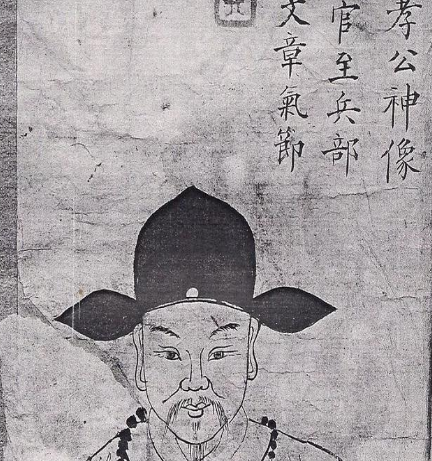 孝公神像
官至兵部
文章氣節